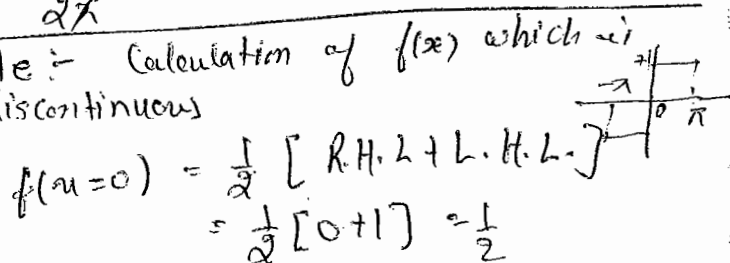 2π
e :- Calculation of f(x) which is
iscontinuous
+1
-π
0 π
f(x=0) = 1/2 [ R.H.L + L.H.L. ]
= 1/2 [0+1] = 1/2